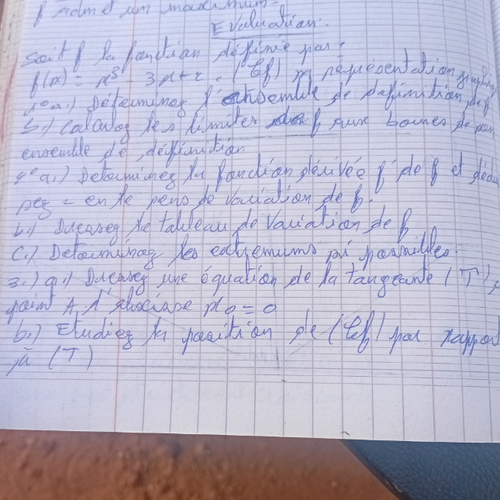 f admet un maximum.
Evaluation.
Soit f la fonction définie par:
f(x) = x³ 3x+2. (Cf) représentation
1° a.) Déterminez l'ensemble de definition de f
b.) Calculez les limites f aux bornes de
ensemble de définition
2° a.) Determinez la fonction dérivée f' de f et
en le sens de variation de f.
b.) Dressez le tableau de variation de f
C.) Determinez les extremums si possibles.
3.) a.) Dressez une équation de la tangeante (T)
point A d'abscisse x₀ = 0
b.) Etudiez la position de (Cf) par rapport
à (T)